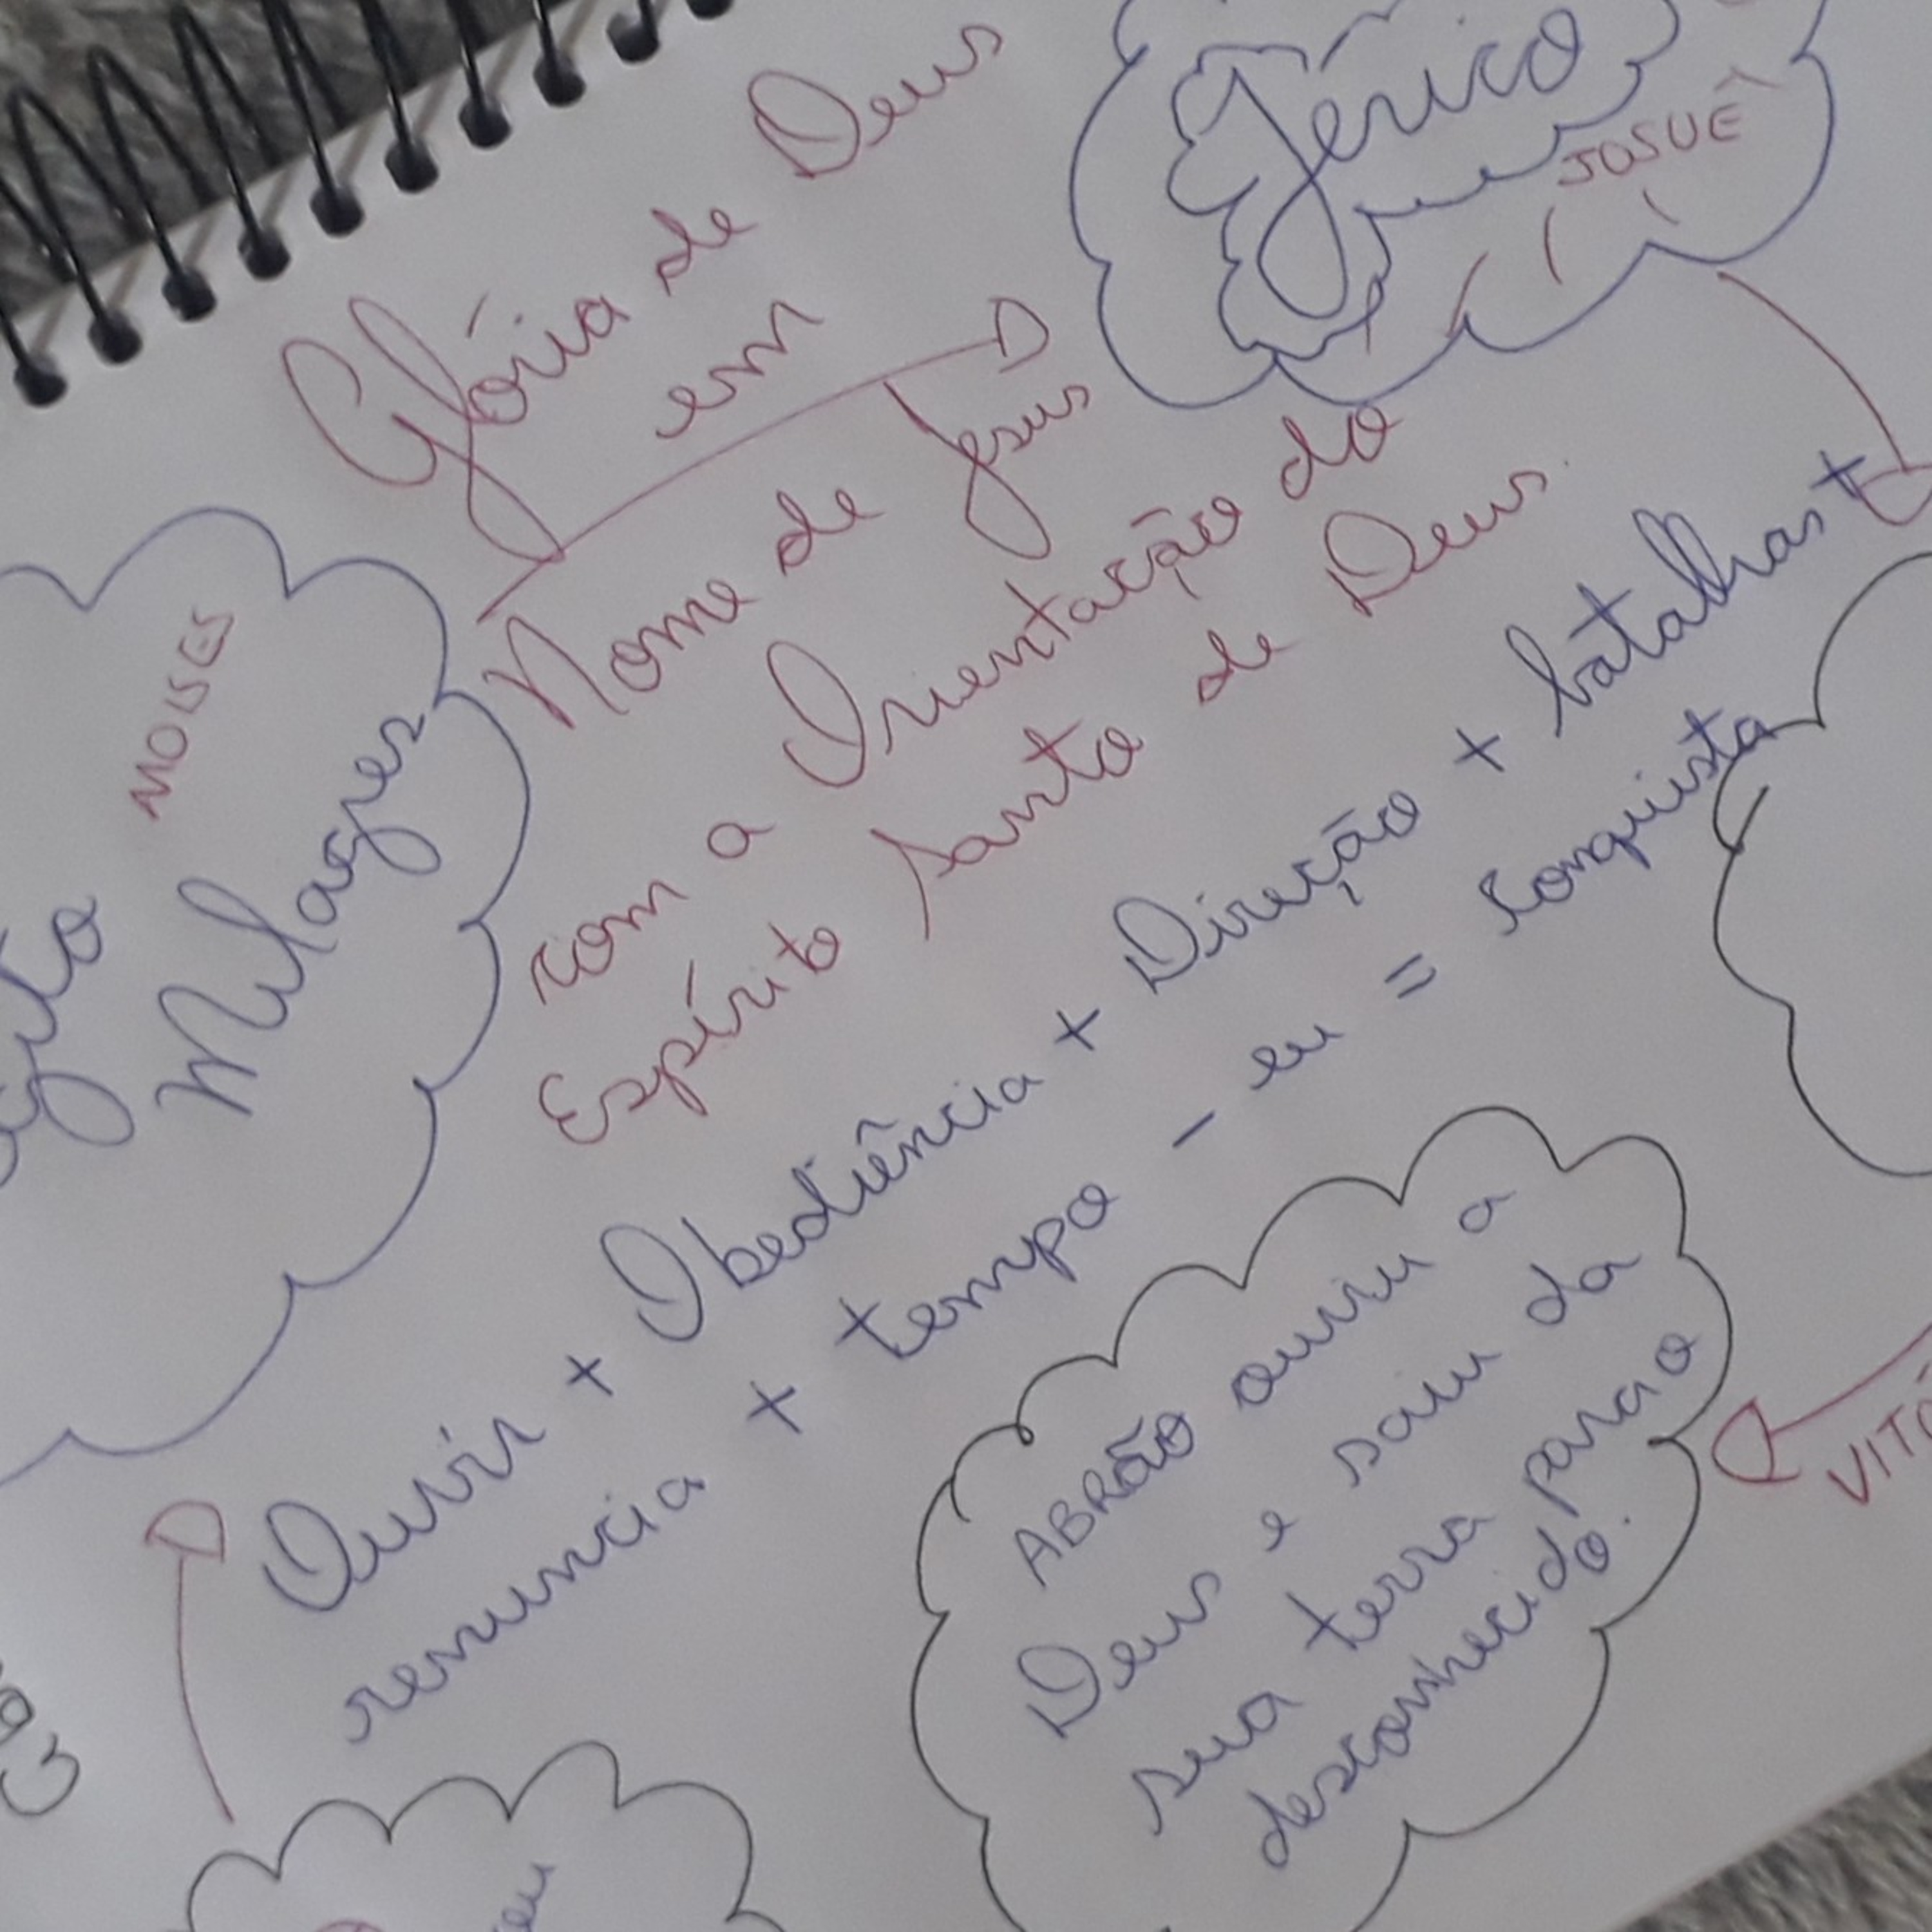 Glória de Deus
em
Nome de Jesus
com a Orientação do
Espírito Santo de Deus
Jericó
JOSUÉ
MOISES
Milagres
Ouvir + Obediência + Direção + batalhas +
renuncia + tempo - eu = conquista
ABRÃO ouviu a
Deus e saiu da
sua terra para o
desconhecido.